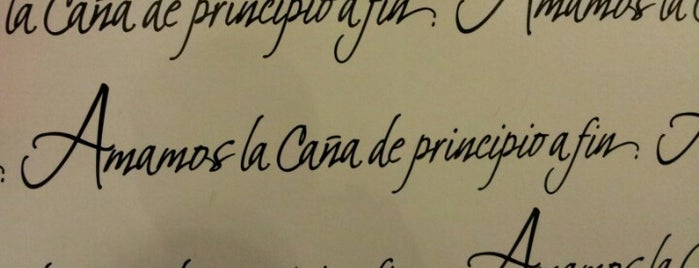 la Caña de principio a fin. Amamos la C
Amamos la Caña de principio a fin. A
Amamos la C